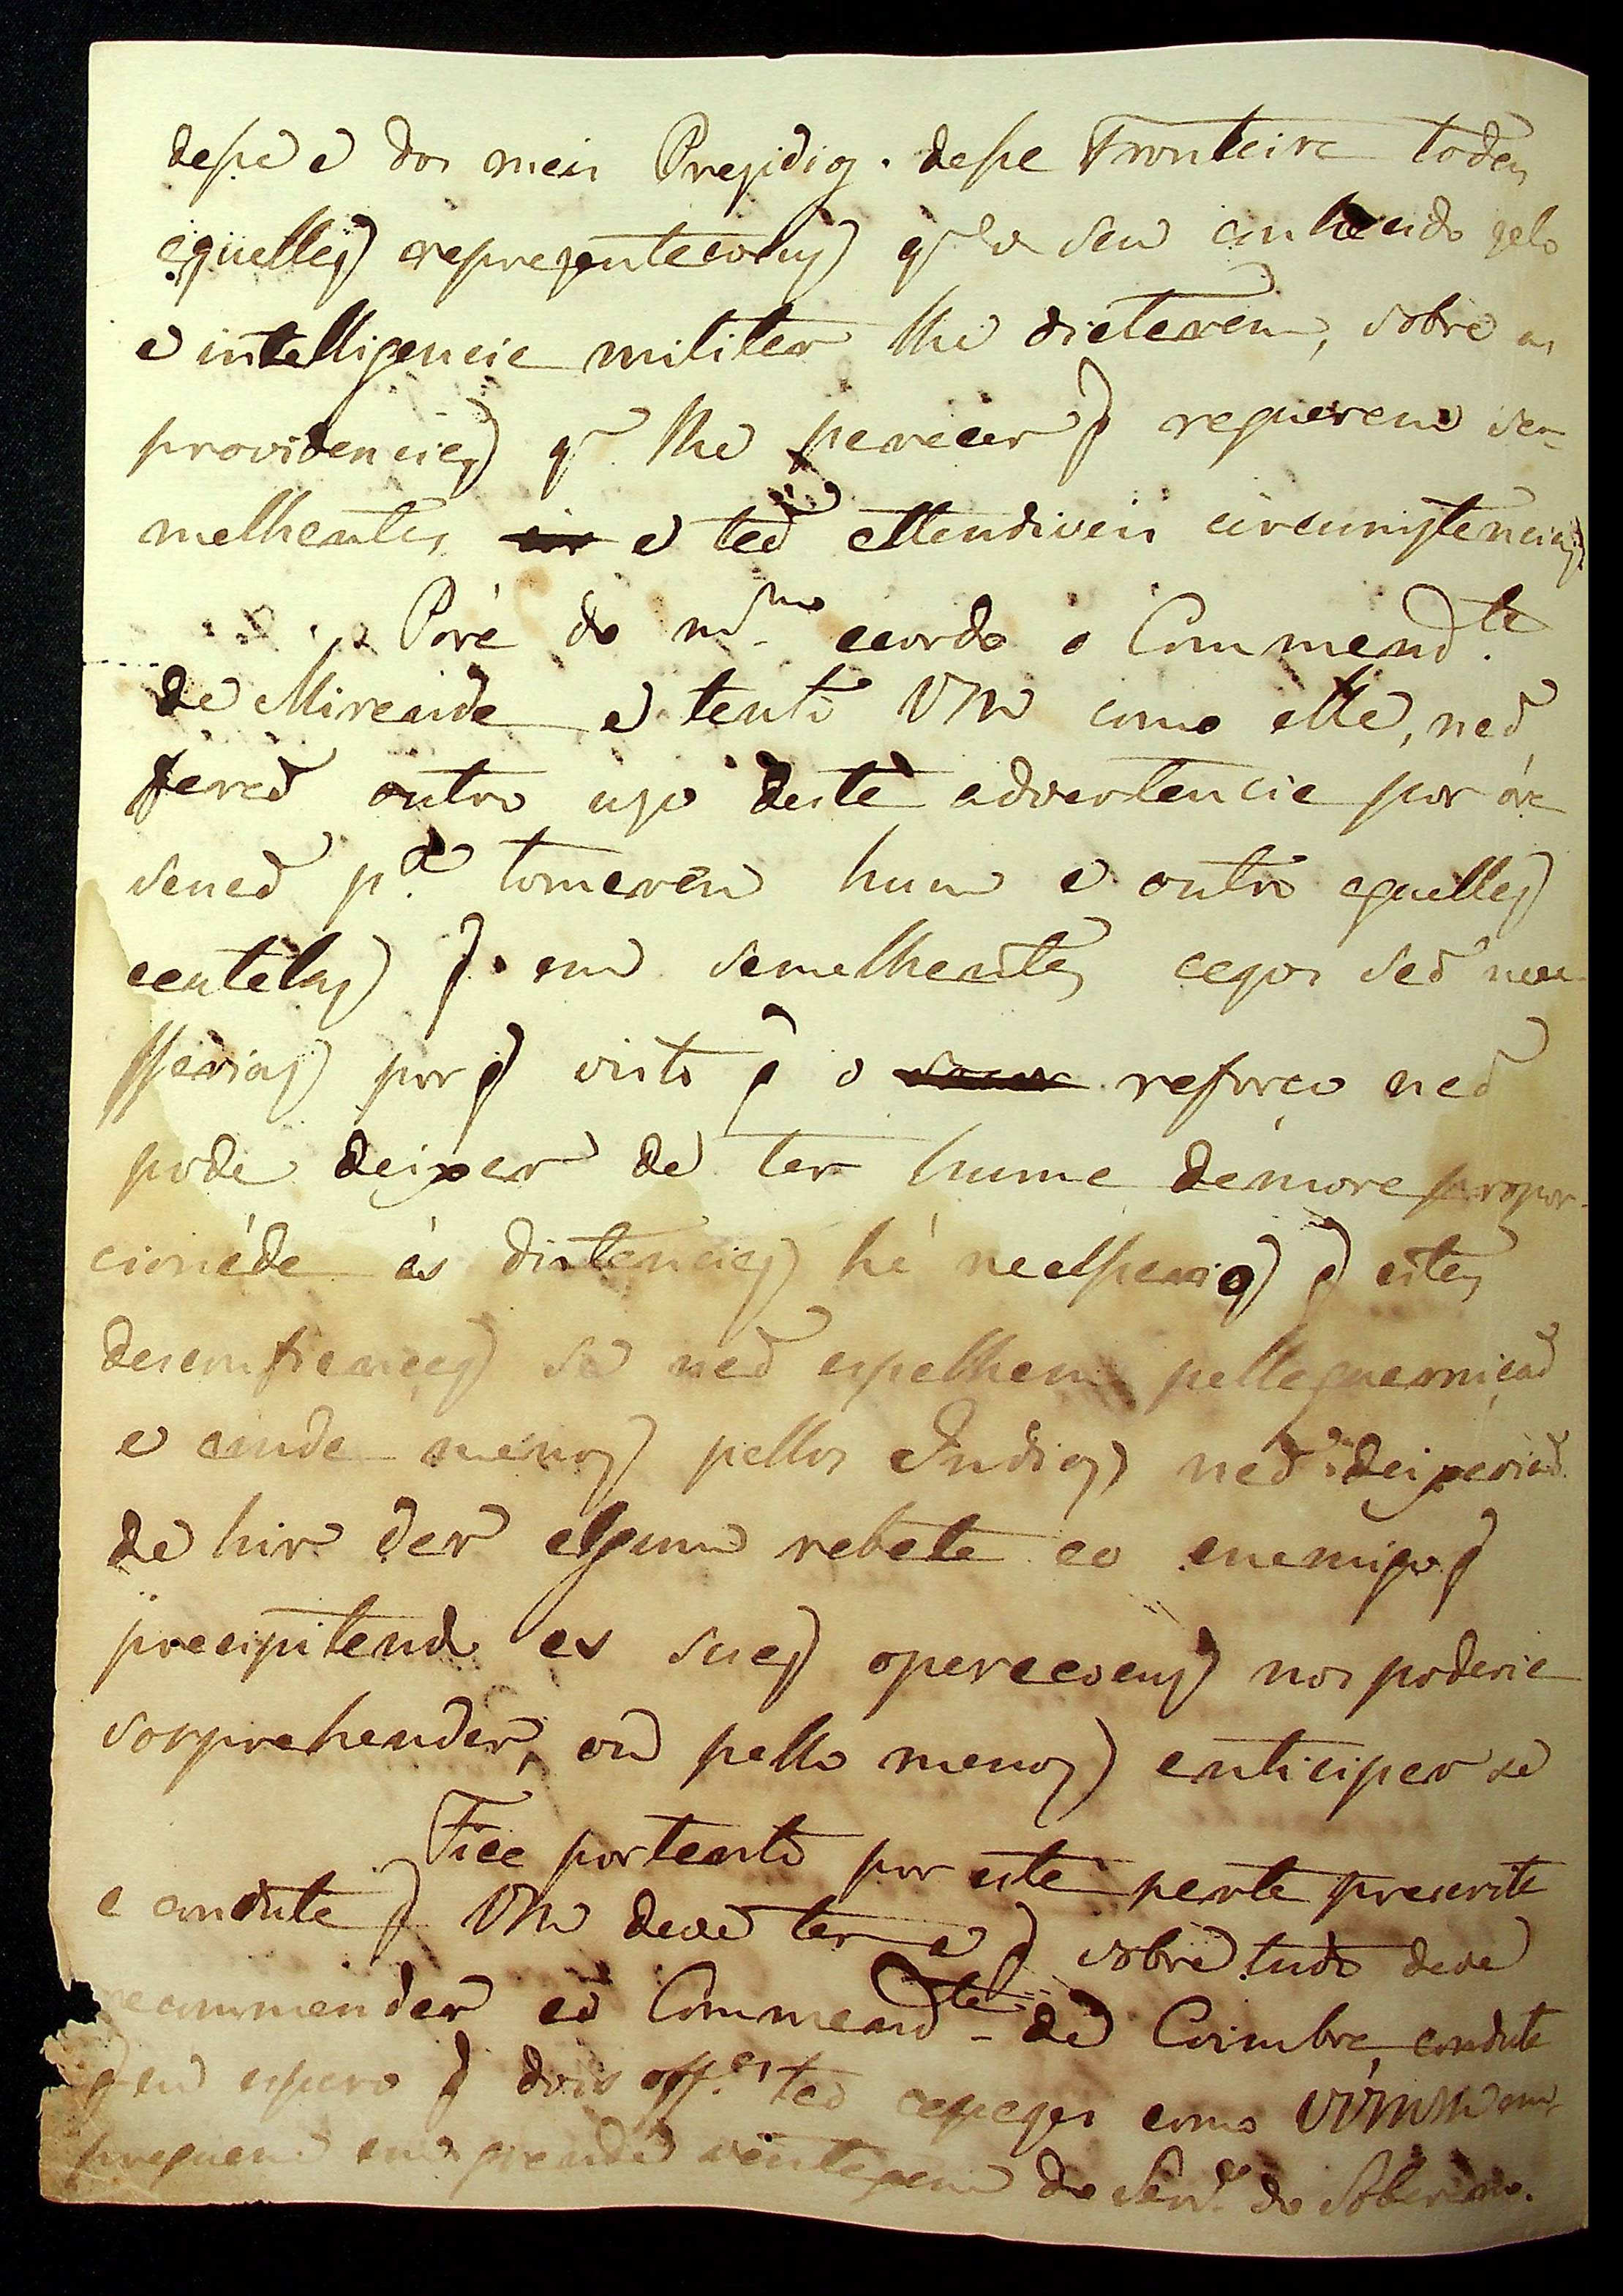 desse e dos mais Prezidios dessa Fronteira todas
aquellas reprezentaçoens q̃ o seu conhecido zelo
e intelligencia militar lhe dictarem, sobre as
providencias q̃ lhe parecer q̃ requerem se-
melhantes e taõ attendiveis circunstancias.
Poré do m.mo acordo o Commend.te
de Miranda e tanto VM como elle, naõ
faraõ outro uzo desta advertencia por óra
senaõ p.a tomarem hum e outro aquellas
cautelas q̃ em semelhantes cazos saõ nece-
ssarias por q̃ visto q̃ o reforço naõ
pode deixar de ter huma demora propor-
cionáda ás distancias hé necessario q̃ estas
desconfianças se naõ espalhem pella guarniçaõ
e ainda menos pellos Indios naõ deixariaõ
de hir dar algum rebate ao enemigo q̃
precipitando as suas operaçoens nos poderia
sorprehender, ou pello menos anticipar se
Fica portanto por esta parte prescrita
a conduta q̃ VM deve ter e q̃ sobre tudo deve
recommendar ao Commend.te de Coimbra, conduta
q̃ eu espero q̃ dois off.es taõ capazes como VVMM em-
preguem em grande ventagem do Serv.o do Soberano.